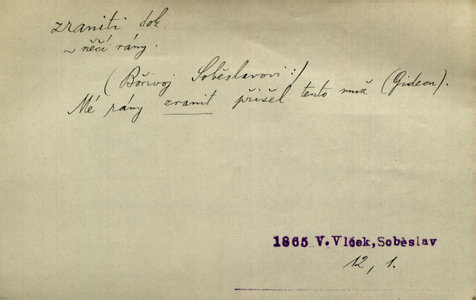 zraniti dok.
~ něčí rány.
(Bořivoj Soběslavovi:)
Mé rány zranit přišel tento muž (Gideon).
1865 V. Vlček, Soběslav
12, 1.